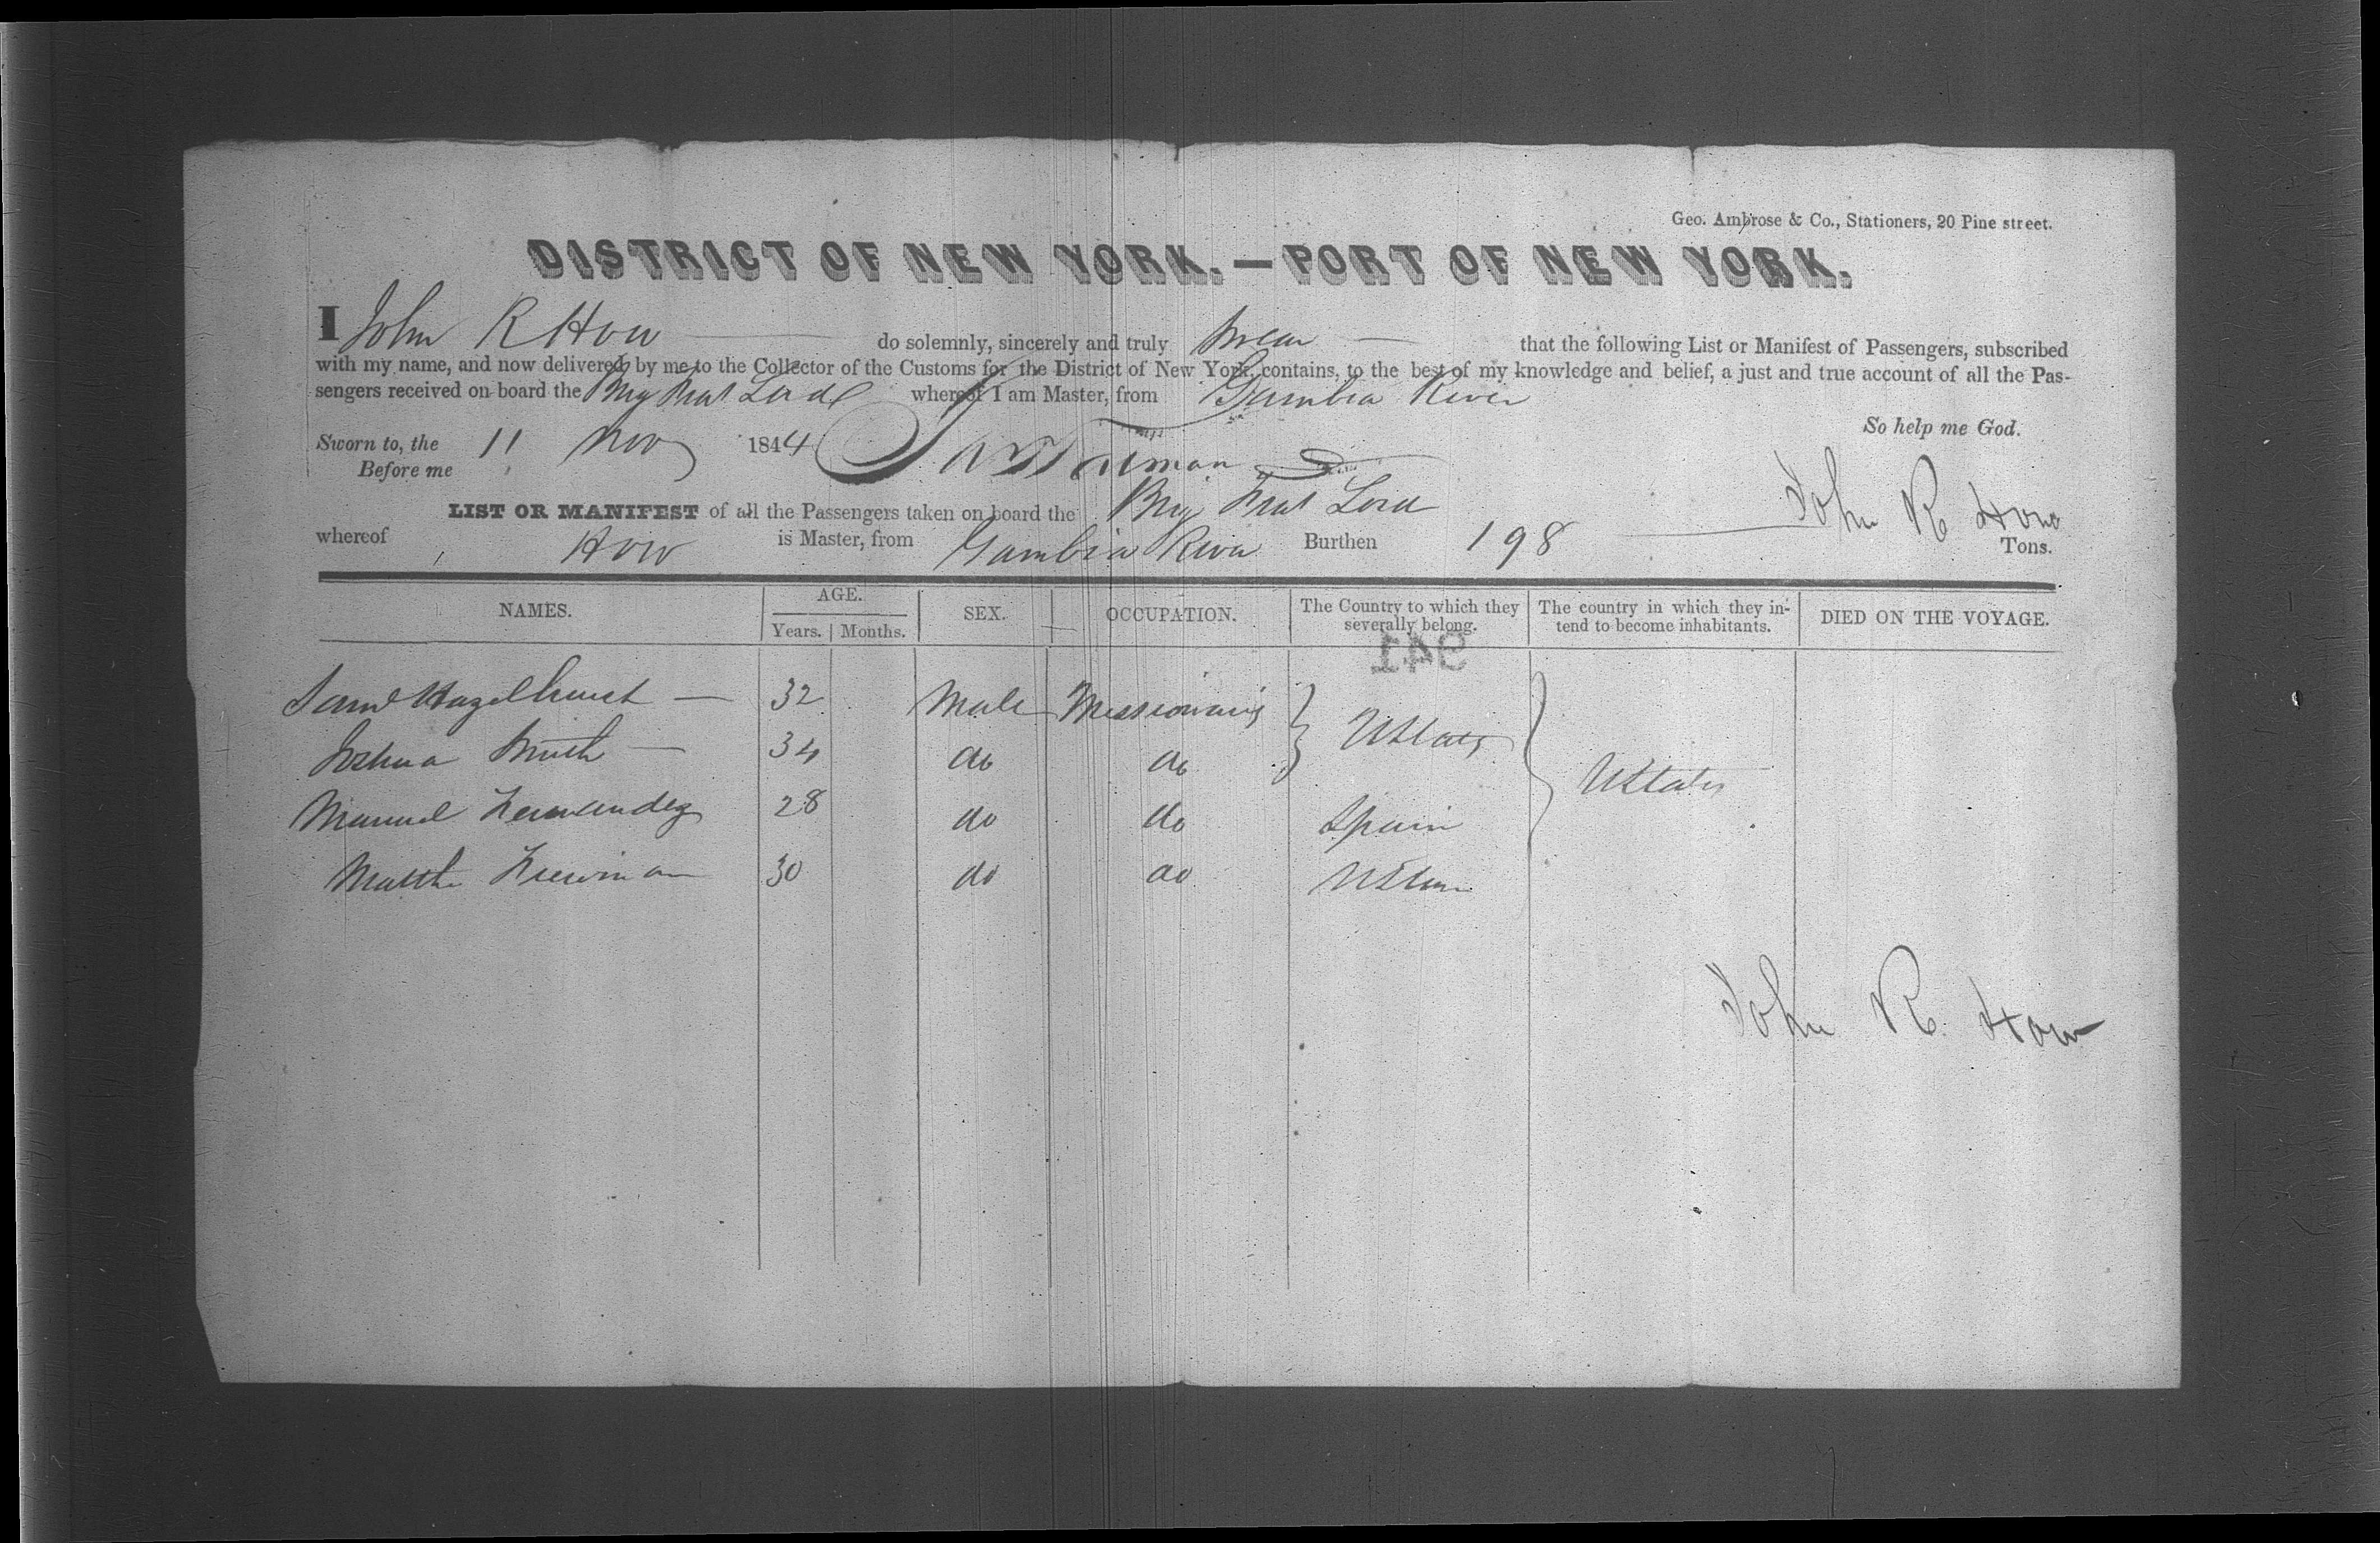 Geo. Ambrose & Co., Stationers, 20 Pine street.
DISTRICT OF NEW YORK.—PORT OF NEW YORK.
I John R How do solemnly, sincerely and truly swear that the following List or Manifest of Passengers, subscribed
with my name, and now delivered by me to the Collector of the Customs for the District of New York, contains, to the best of my knowledge and belief, a just and true account of all the Pas-
sengers received on board the Brig whereof I am Master, from Gambia River
So help me God.
Sworn to, the 11 Nov 1844
Before me
John R How
LIST OR MANIFEST of all the Passengers taken on board the Brig
whereof How is Master, from Gambia River Burthen 198 Tons.
NAMES. AGE. Years. Months. SEX. OCCUPATION. The Country to which they severally belong. The country in which they in-tend to become inhabitants. DIED ON THE VOYAGE.
941
Saml Hazelhurst 32 Male Missionaries UStates UStates
Joshua Smith 34 do do
Manuel Fernandez 28 do do Spain
Matthw Freeman 30 do do UStates
John R. How